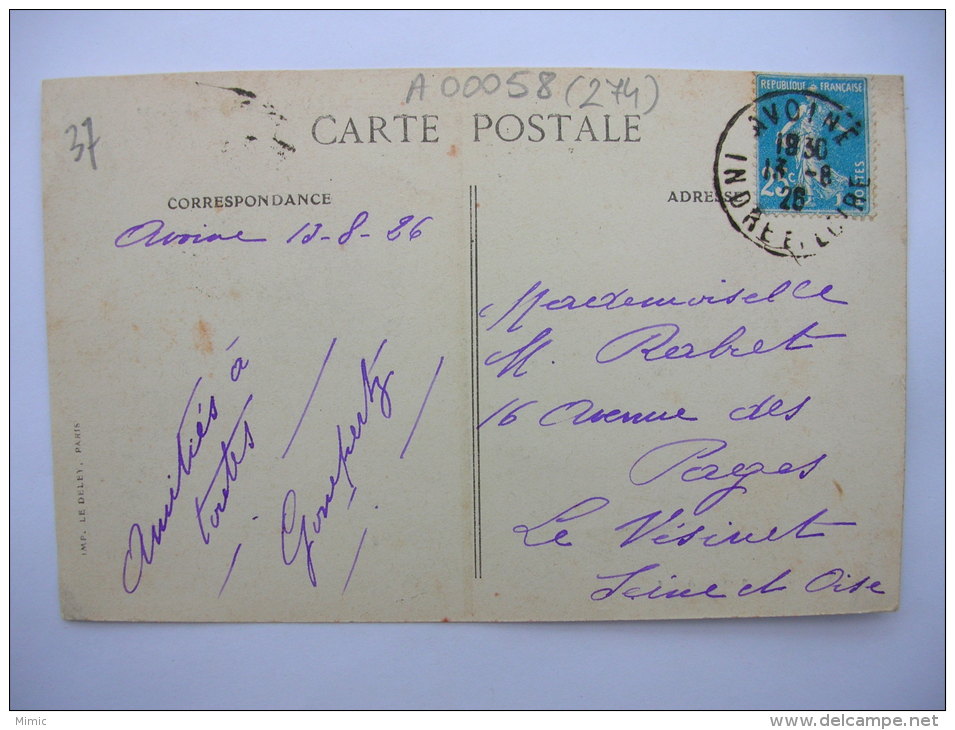 A 00058 (274)
37
CARTE POSTALE
CORRESPONDANCE
ADRESSE
REPUBLIQUE FRANÇAISE
25c
POSTES
AVOINE
1930
13 -8
26
INDRE ET LOIRE
Avoine 13-8-26
Amitiés à
toutes
Gompertz
Mademoiselle
M. Rabret
16 Avenue des
Pages
Le Vésinet
Seine et Oise
IMP. LE DELEY, PARIS
Mimic
www.delcampe.net